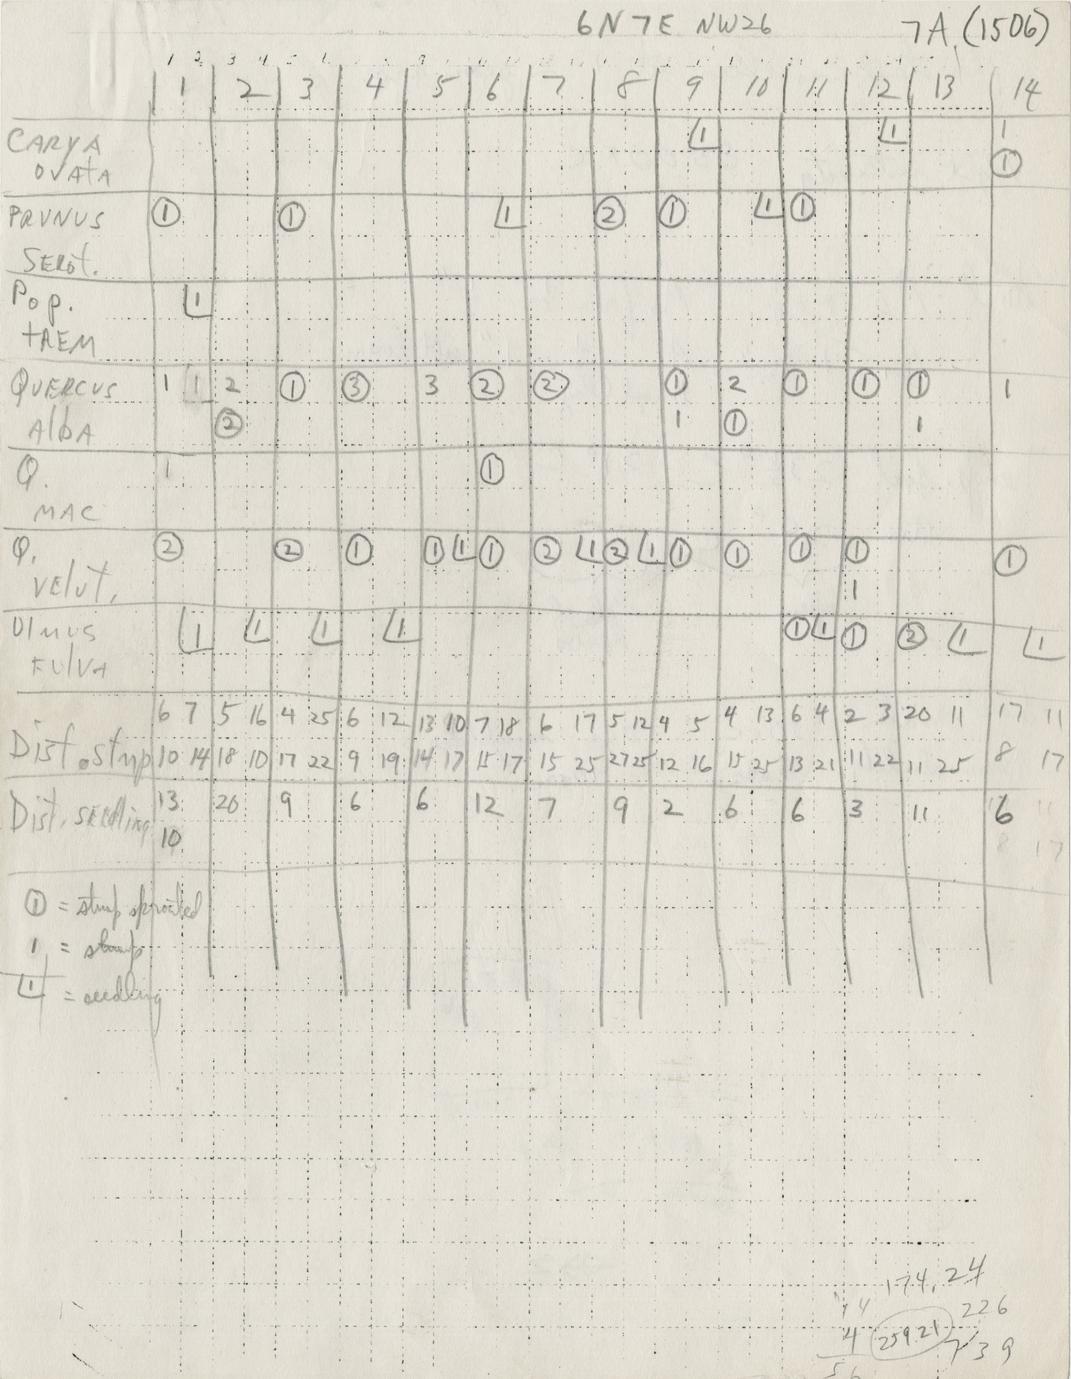 6N 7E NW26 7A (1506)
1 2 3 4 5 6 7 8 9 10 11 12 13 14
CARYA ⌊1 ⌊1 1
OVATA ①
PRUNUS ① ① ⌊1 ② ① ⌊1 ①
SEROT.
Pop. ⌊1
tREM
QUERCUS 1 1 2 ① ③ 3 ② ② ① 2 ① ① ① 1
AlbA ② 1 ① 1
Q. 1 ①
MAC
Q. ② ② ① ① ⌊1 ① ② ⌊1 ② ⌊1 ① ① ① ① ①
VElut. 1
UlMUS ⌊1 ⌊1 ⌊1 ⌊1 ① ⌊1 ① ② ⌊1 ⌊1
FUlVA
6 7 5 16 4 25 6 12 13 10 7 18 6 17 5 12 4 5 4 13 6 4 2 3 20 11 17 11
Dist. stmp 10 14 18 10 17 22 9 19 14 17 15 17 15 25 27 25 12 16 15 25 13 21 11 22 11 25 8 17
Dist. seedling 13 20 9 6 6 12 7 9 2 6 6 3 11 6
10 8 17
① = stump sprouted
1 = stump
⌊1 = seedling
174.24
14 226
4 259.21 739
56